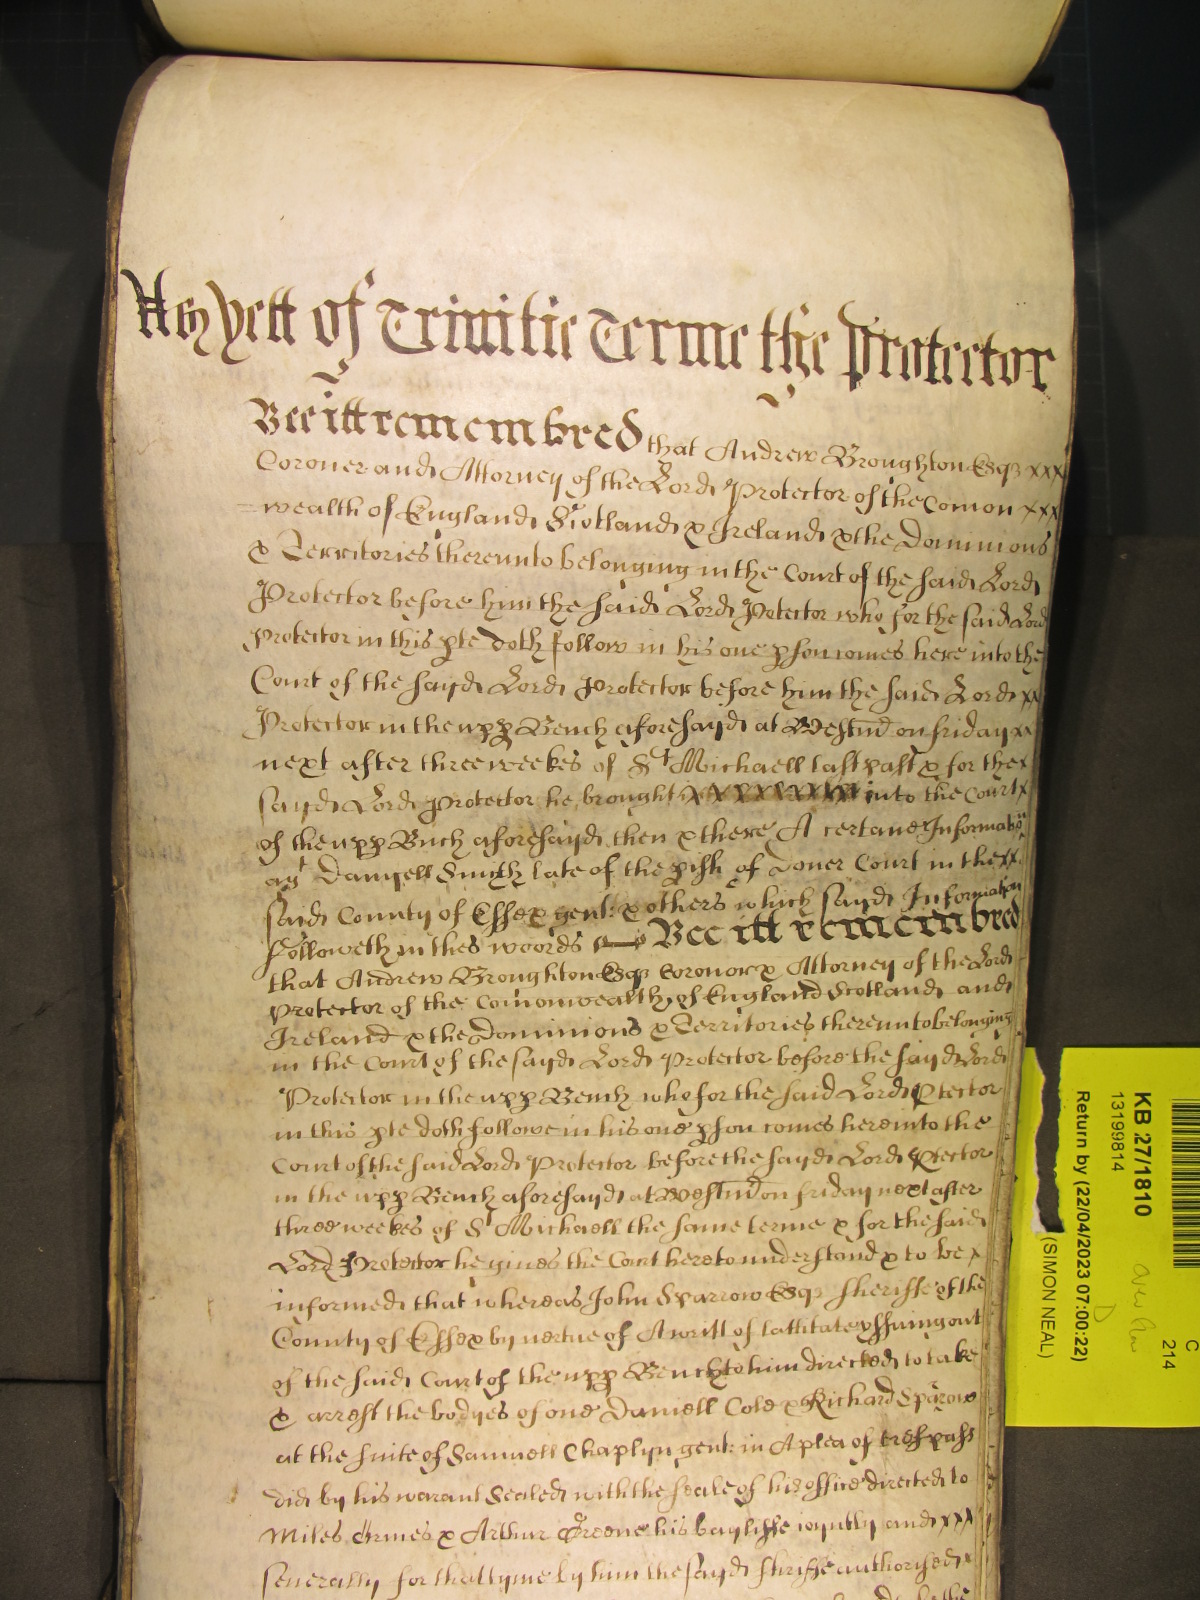 As yett of Trinitie Terme the Protector
Bee itt remembred that Andrew Broughton Esqr xxx
Coroner and Attorney of the Lord Protector of the Comon xxx
=wealth of England Scotland & Ireland & the Dominions
& Territories thereunto belonging in the Court of the said Lord
Protector before him the said Lord Protector who for the said Lord
Protector in this pte doth follow in his one pson comes here into the
Court of the sayd Lord Protector before him the said Lord xx
Protector in the upp Bench aforesayd at Westmr on friday xx
next after three weekes of St Michaell last past & for the x
sayd Lord Protector he brought xxxxxxxxx into the Court x
of the upp Bnch aforesayd then & there A certane Informatio
agt Danyell Smyth late of the pish of Dover Court in the xx
said County of Essex gent: & others which sayd Information
followeth in thes woords Bee itt remembred
that Andrew Broughton Esqr Coronor & Attorney of the Lord
Protector of the Comonwealth of England Scotland and
Ireland & the Dominions & Territories thereunto belonging
in the Court of the sayd Lord Protector before the sayd Lord
Protector in the upp Bench who for the said Lord Ptector
in this pte doth followe in his one pson comes here into the
Court of the said Lord Protector before the sayd Lord Ptector
in the upp Bench aforesayd at Westmr on friday next after
three weekes of St Michaell the same terme & for the said
Lord Protector he gives the Court here to understand & to be x
informed that whereas John Sparrow Esqr Sheriffe of the
County of Essex by vertue of A writt of lattitate yssuing out
of the said Court of the upp Bench to him directed to take
& arrest the bodyes of one Daniell Cole & Richard Sparow
at the suite of Samuell Chaplyn gent: in A plea of trespass
did by his warant Sealed with the seale of his office directed to
Miles Ormes & Arthur Greene his bayliffe ioyntly and xxx
severally for that tyme by him the sayd shriffe authorised x
KB 27/1810
13199814
Return by (22/04/2023 07:00:22)
(SIMON NEAL)
D
C
214